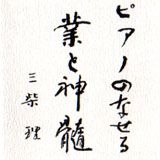 ピアノのなせる
業と神髄
三柴理